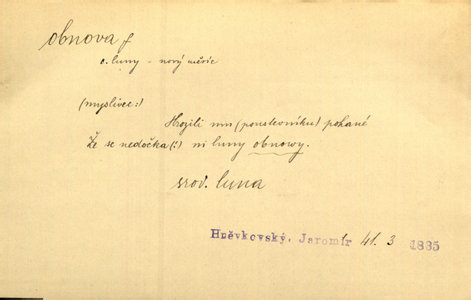 obnova f
o. luny - nový měsíc
(myslivec:)
Hrozili mu (poustevníku) pohané
Že se nedočká (:) ni luny obnowy.
srov. luna
Hněvkovský, Jaromír 41. 3 1835